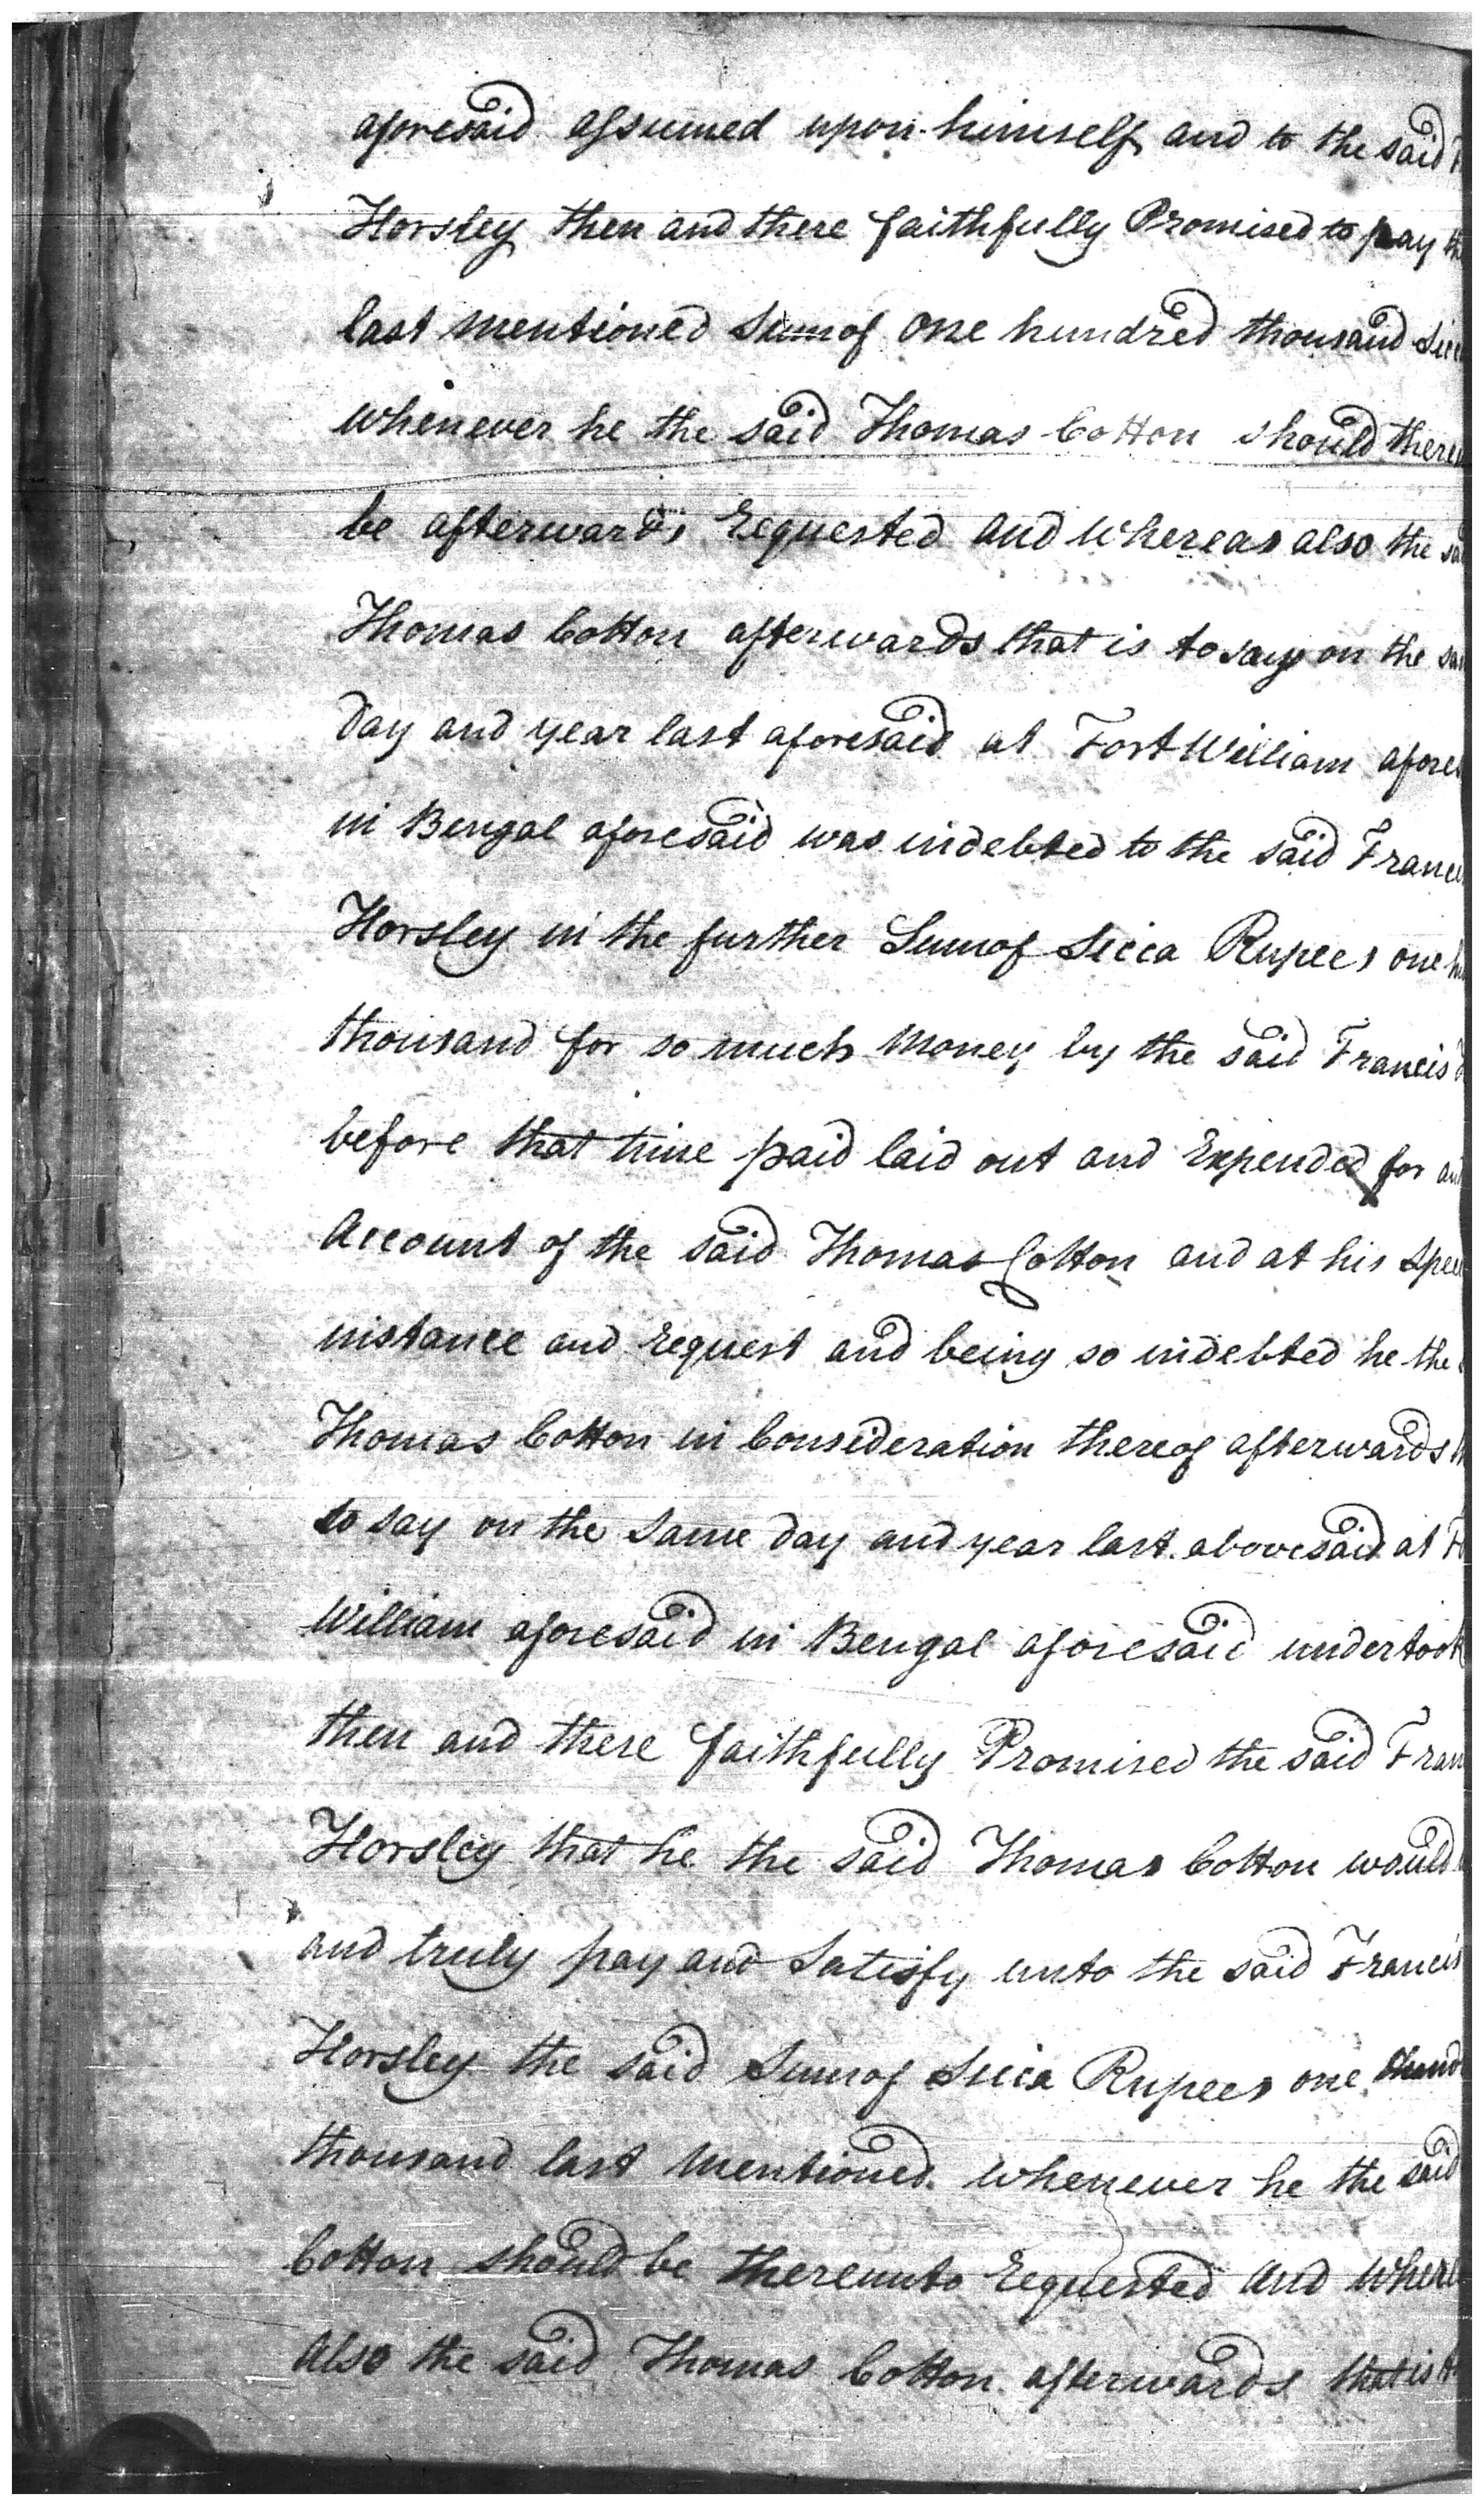 aforesaid assumed upon himself and to the said
Horsley then and there faithfully Promised to pay
last mentioned Sum of One hundred thousand
whenever he the said Thomas Cotton should
be afterwards requested and whereas also the
Thomas Cotton afterwards that is to say on the
day and year last aforesaid at Fort William
in Bengal aforesaid was indebted to the said
Horsley in the further Sum of Sicca Rupees one
thousand for so much Money by the said Francis
before that time paid laid out and Expended for
Account of the said Thomas Cotton and at his
instance and request and being so indebted he the
Thomas Cotton in Consideration thereof afterwards
to say on the same day and year last abovesaid at
William aforesaid in Bengal aforesaid undertook
then and there faithfully Promised the said
Horsley that he the said Thomas Cotton would
and truly pay and Satisfy unto the said Francis
Horsley the said Sum of Sicca Rupees one
thousand last mentioned whenever he the said
Cotton should be thereunto requested and
Also the said Thomas Cotton afterwards that is